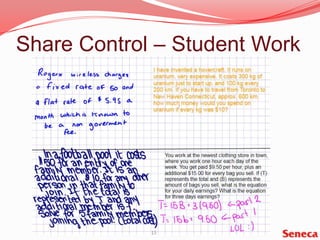 Share Control – Student Work
Rogers wireless charges
a fixed rate of 50 and
a flat rate of $ 5.95 a
month which is known to
be a non government
fee.
I have invented a hovercraft, it runs on
uranium, very expensive. It costs 300 kg of
uranium just to start up, and 100 kg every
250 km. If you have to travel from Toronto to
New Haven Connecticut, approx. 600 km,
how much money would you spend on
uranium if every kg was $10?
In a football pool it costs
$50 for an entry of one
family member. It is an
additional $10 for any other
person in that family to
join. If the total is
represented by T and any
additional member is f
solve for 5 family members
joining the pool (total cost)
You work at the newest clothing store in town,
where you work one hour each day of the
week. You get paid $9.50 per hour, plus an
additional $15.00 for every bag you sell. If (T)
represents the total and (B) represents the
amount of bags you sell, what is the equation
for your daily earnings? What is the equation
for three days earnings?
T= 15B + 3(9.50) ← part 2
T= 15b + 9.50 ← part 1
LOL :)
Seneca